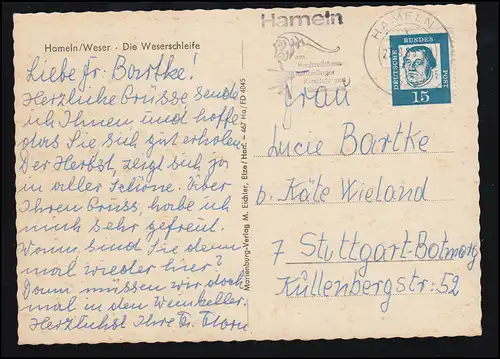 Hameln/Weser · Die Weserschleife
Liebe Fr. Bartke!
Herzliche Grüsse sende
ich Ihnen und hoffe
das Sie sich gut erholen.
Der Herbst, zeigt sich ja
in aller Schöne. Über
Ihren Gruss, habe ich
mich sehr gefreut.
Wann, sind Sie denn
mal wieder hier?
Dann müssen wir doch
mal in den Weinkeller.
Herzlichst Ihre Fr.
Marienburg-Verlag M. Eichler, Elze/Hann. – 467 Ha/FD 4045
Hameln
am
HAMELN
DEUTSCHE BUNDES POST
15
Frau
Lucie Bartke
b. Käte Wieland
7 Stuttgart-Botnang
Küllenbergstr. 52